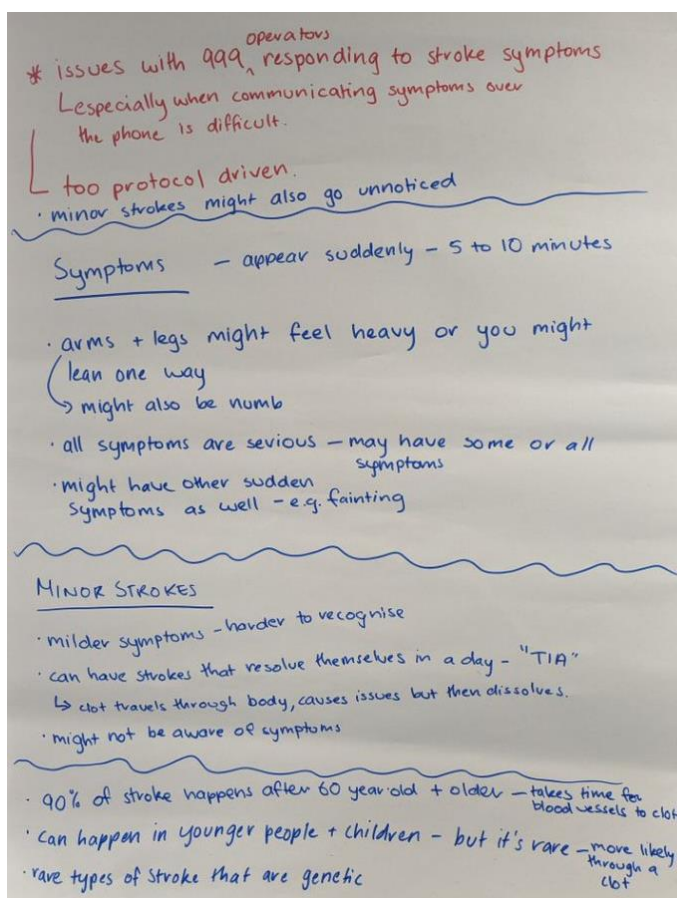 operators
* issues with 999 ^ responding to stroke symptoms
especially when communicating symptoms over
the phone is difficult.
too protocol driven.
· minor strokes might also go unnoticed
Symptoms – appear suddenly – 5 to 10 minutes
· arms + legs might feel heavy or you might
lean one way
→ might also be numb
· all symptoms are serious – may have some or all
symptoms
· might have other sudden
symptoms as well – e.g. fainting
MINOR STROKES
· milder symptoms – harder to recognise
· can have strokes that resolve themselves in a day – "TIA"
↳ clot travels through body, causes issues but then dissolves.
· might not be aware of symptoms
· 90% of stroke happens after 60 year old + older – takes time for
blood vessels to clot
· can happen in younger people + children – but it's rare – more likely
through a
clot
· rare types of stroke that are genetic